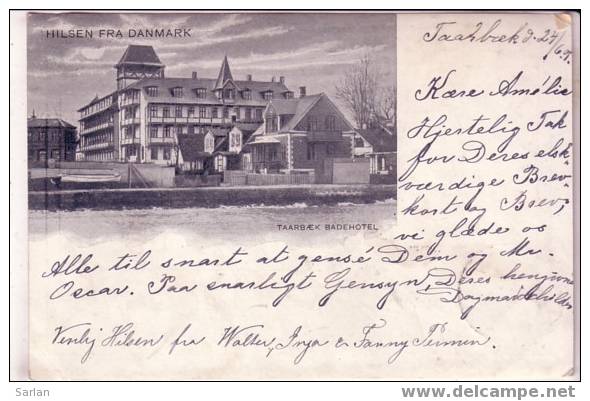 HILSEN FRA DANMARK
TAARBÆK BADEHOTEL
Taarbæk d. 24/6
Kære Amélie
Hjertelig Tak
for Deres elsk-
værdige Brev-
kort og Brev,
vi glæde os
Alle til snart at gensé Dem og Mr.
Oscar. Paa snarligt Gensyn, Deres hengivne
Venlig Hilsen fra Walter, Inga & Fanny
Sarlan
www.delcampe.net